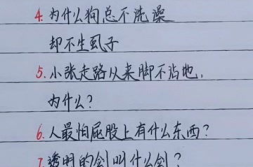 4. 为什么狗总不洗澡
却不生虱子
5. 小张走路从来脚不沾地,
为什么?
6. 人最怕屁股上有什么东西?
7. 透明的剑叫什么剑?